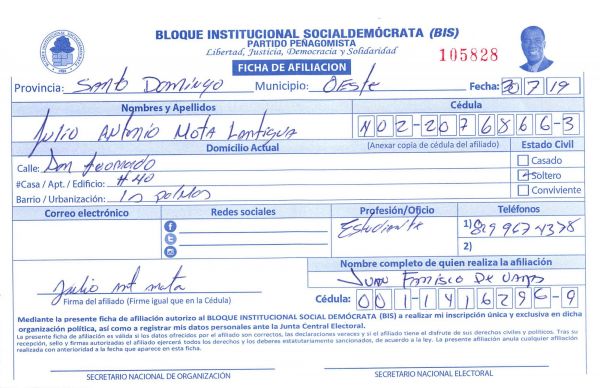 BLOQUE INSTITUCIONAL SOCIALDEMÓCRATA (BIS)
PARTIDO PEÑAGOMISTA
Libertad, Justicia, Democracia y Solidaridad
105828
FICHA DE AFILIACION
Provincia: Santo Domingo Municipio: Oeste Fecha: 30/7/19
Nombres y Apellidos Cédula
Julio Antonio Mota Lantigua 402-2076866-3
Domicilio Actual (Anexar copia de cédula del afiliado) Estado Civil
Calle: Don Leonardo Casado
#Casa / Apt. / Edificio: #40 Soltero
Barrio / Urbanización: las palmas Conviviente
Correo electrónico Redes sociales Profesión/Oficio Teléfonos
Estudiante 1) 829 967 4378
2)
Nombre completo de quien realiza la afiliación
Julio mota Juan Francisco De
Firma del afiliado (Firme igual que en la Cédula) Cédula: 001-1416296-9
Mediante la presente ficha de afiliación autorizo al BLOQUE INSTITUCIONAL SOCIAL DEMÓCRATA (BIS) a realizar mi inscripción única y exclusiva en dicha
organización política, así como a registrar mis datos personales ante la Junta Central Electoral.
La presente ficha de afiliación es válida si los datos ofrecidos por el afiliado son correctos, las declaraciones veraces y si el titular disfruta de sus derechos civiles y políticos. Tras su
recepción, sello y firmas autorizadas el afiliado ejercerá todos los derechos y los deberes estatutariamente sancionados, de acuerdo a la ley. La presente afiliación anula cualquier afiliación
realizada con anterioridad a la fecha que aparece en esta ficha.
SECRETARIO NACIONAL DE ORGANIZACIÓN SECRETARIO NACIONAL ELECTORAL